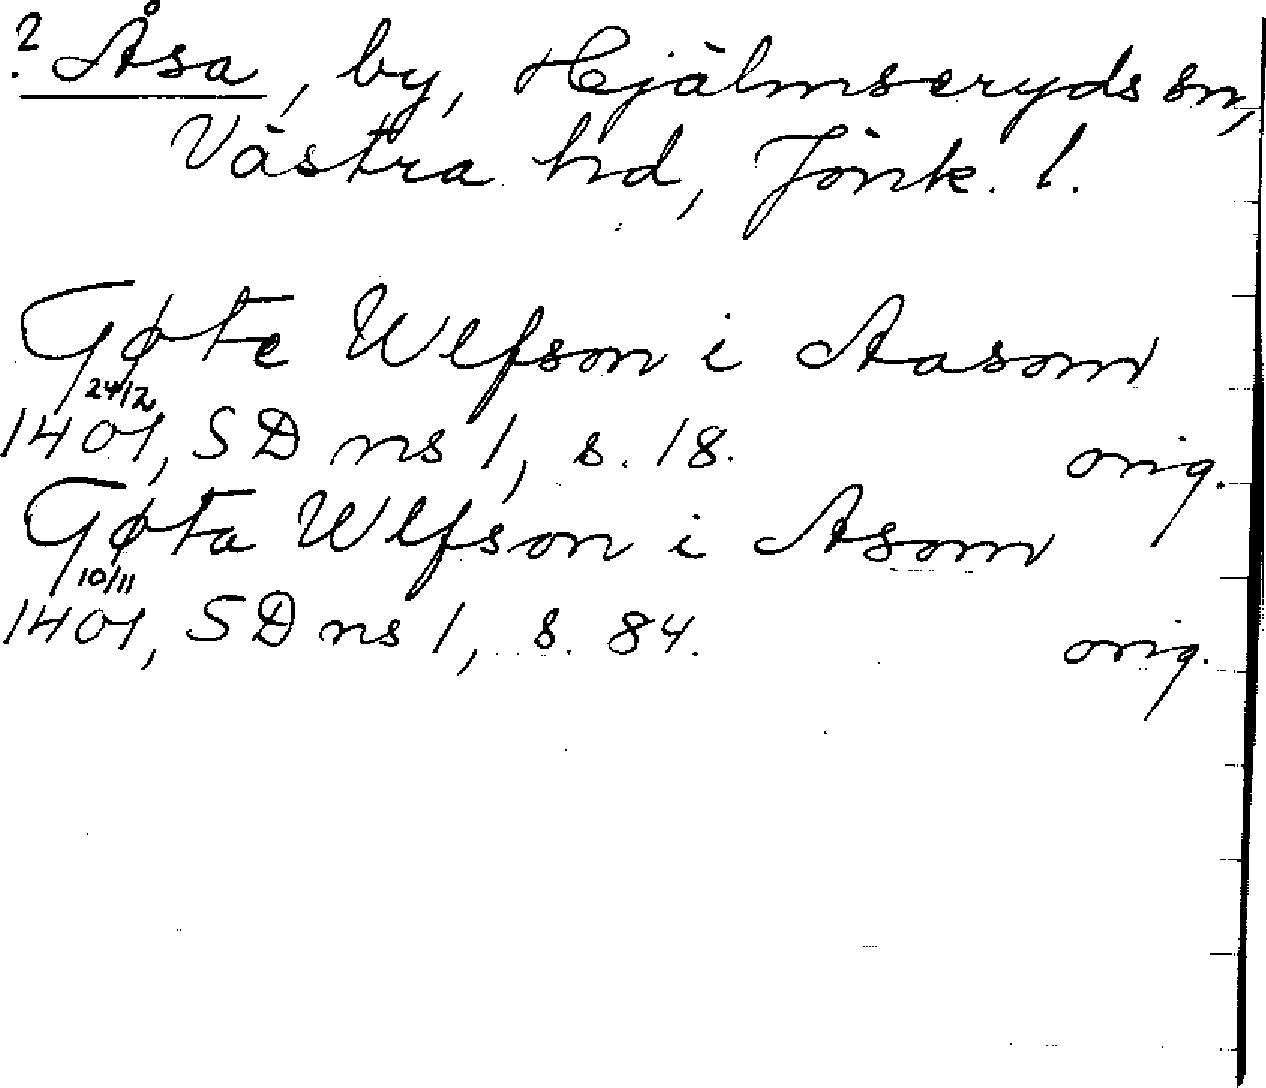 ? Åsa, by, Hjälmseryds sn,
Västra hd, Jönk. l.
Gøte Wlfson i Aasom
24/2
1401, SD ns 1, s. 18. orig.
Gøta Wlfson i Asom
10/11
1401, SD ns 1, s. 84. orig.